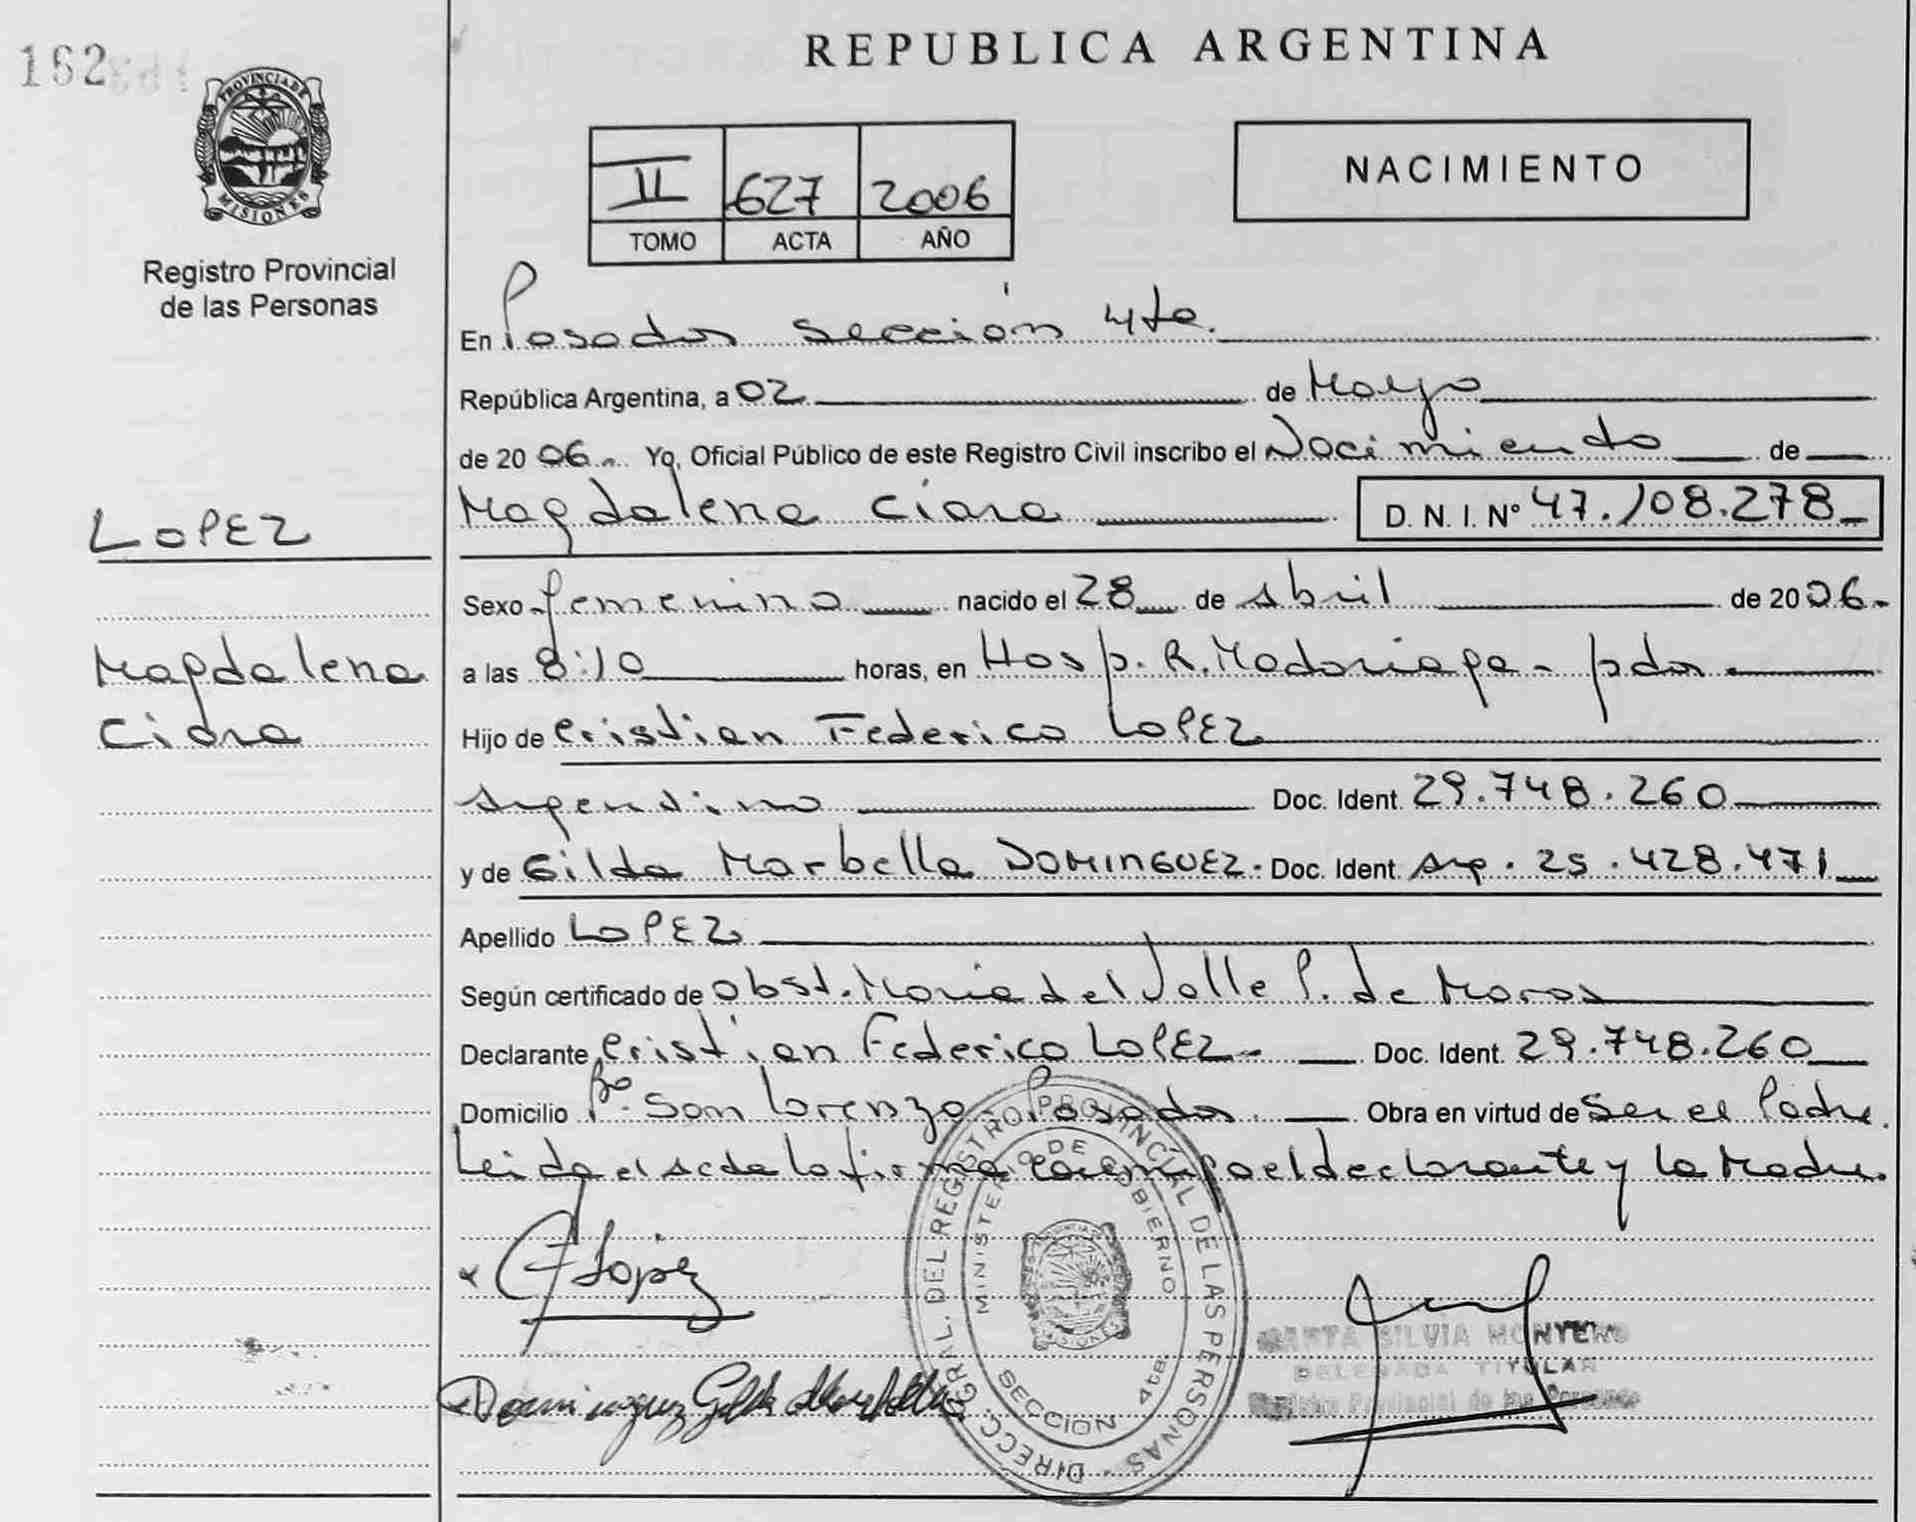 162
PROVINCIA DE
MISIONES
Registro Provincial
de las Personas
LOPEZ
Magdalena
Ciara
REPUBLICA ARGENTINA
II 627 2006
TOMO ACTA AÑO
NACIMIENTO
En Posadas sección 4ta.
República Argentina, a 02 de Mayo
de 2006. Yo, Oficial Público de este Registro Civil inscribo el Nacimiento de
Magdalena Ciara D. N. I. Nº 47.108.278
Sexo femenino nacido el 28 de Abril de 2006.
a las 8:10 horas, en Hosp. R. Madariaga - pdas
Hijo de Cristian Federico LOPEZ
Argentino Doc. Ident. 29.748.260
y de Gilda Marbella DOMINGUEZ - Doc. Ident. Arg. 25.428.471
Apellido LOPEZ
Según certificado de obst. María del Valle P. de Moras
Declarante Cristian Federico LOPEZ - Doc. Ident. 29.748.260
Domicilio Bº San Lorenzo - Posadas. Obra en virtud de Ser el Padre.
Leida el Acta la firma conmigo el declarante y la Madre.
DIRECC. GRAL. DEL REGISTRO PROVINCIAL DE LAS PERSONAS
MINISTERIO DE GOBIERNO
MISIONES
SECCION 4ta
Lopez
Dominguez Gilda Marbella
MARTA SILVIA MONTERO
DELEGADA TITULAR
Registro Provincial de las Personas